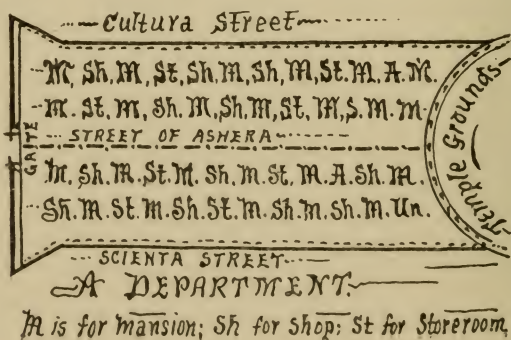 Cultura Street
M, Sh, M, St, Sh, M, Sh, M, St. M, A. M.
M. St, M, Sh. M, Sh, M, St, M, S. M. M.
STREET OF ASHERA
GAITE
M, Sh. M, St. M. Sh, M. St, M. A. Sh. M.
Sh. M. St. M. Sh. St. M. Sh. M. Sh. M. Un.
Temple Grounds
SCIENTA STREET
A DEPARTMENT.
M is for mansion; Sh for Shop; St for Storeroom,